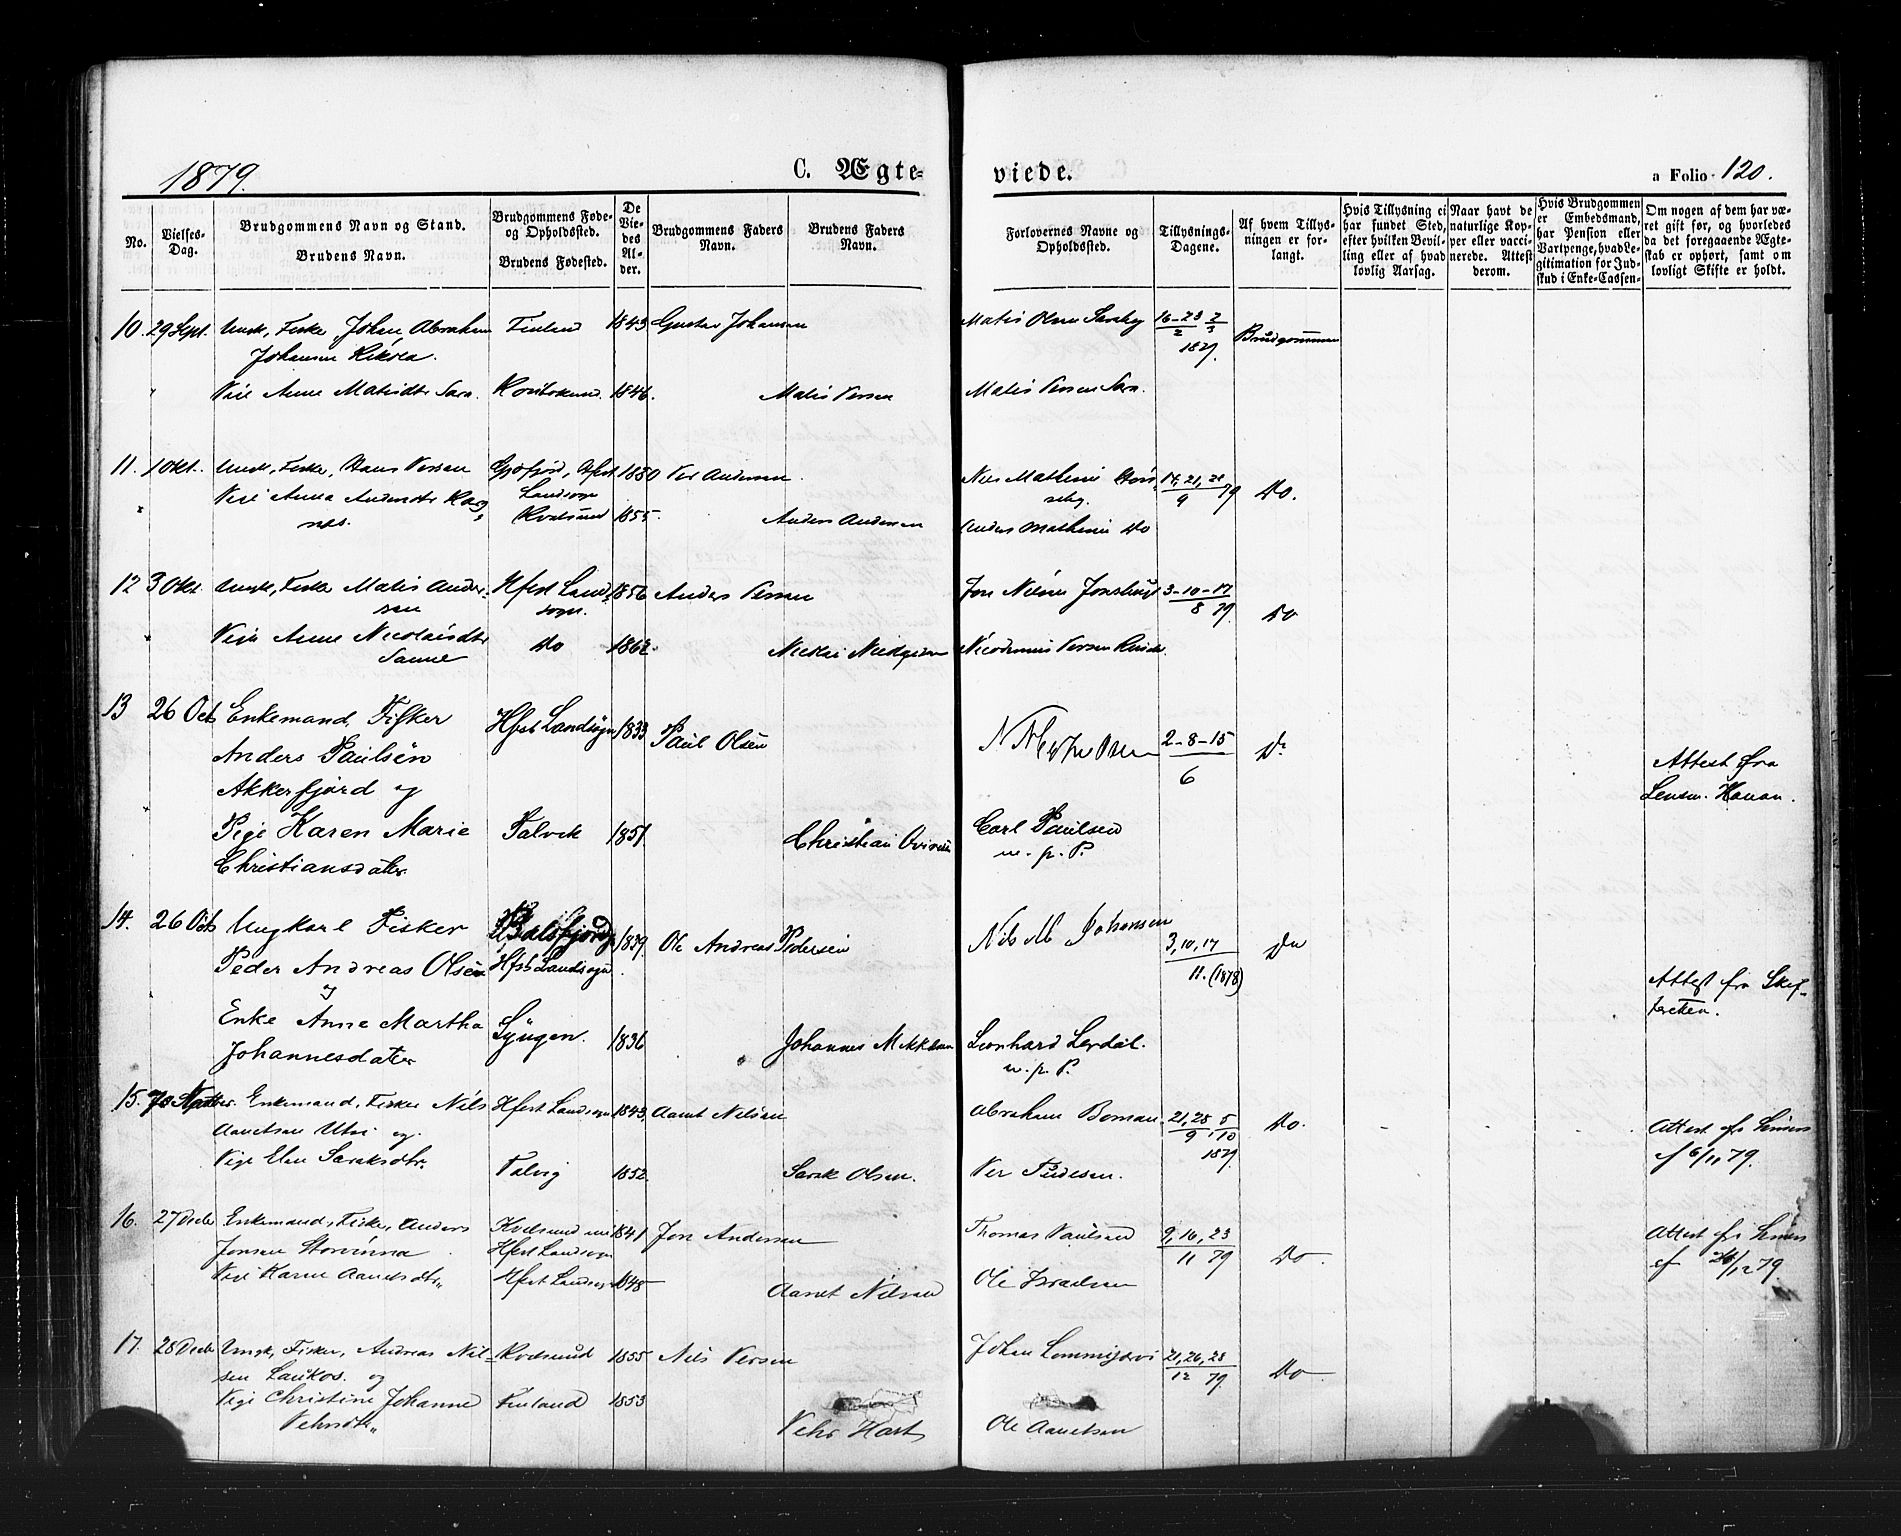 1879.
C. Ægte-
viede.
a Folio 120.
No.
Vielses-
Dag.
Brudgommens Navn og Stand.
Brudens Navn.
Brudgommens Føde-
og Opholdssted.
Brudens Fødested.
De
Vie-
des
Al-
der.
Brudgommens Faders
Navn.
Brudens Faders
Navn.
Forlovernes Navne og
Opholdssted.
Tillysnings-
Dagene.
Af hvem Tillys-
ningen er for-
langt.
Hvis Tillysning ei
har fundet Sted,
efter hvilken Bevil-
ling eller af hvad
lovlig Aarsag.
Naar havt de
naturlige Kop-
per eller vacci-
nerede. Attest
derom.
Hvis Brudgommen
er Embedsmand,
har Pension eller
Vartpenge, hvad Le-
gitimation for Ind-
skud i Enke-Cassen
Om nogen af dem har væ-
ret gift før, og hvorledes
da det foregaaende Ægte-
skab er ophørt, samt om
lovligt Skifte er holdt.
10. 29 Sept. Ungk, Fisker Johan Abraham Finland 1843 Gustav Johansen Matis Olsen 16-23 2 Brudgommen
Johansen 2 3
1879.
" Pige Anne Matisdtr Sara. 1846. Matis Persen Matis Persen Sara.
11. 1 Okt. Ungk, Fisker, Hans Persen Hfest 1850 Per Andersen Nils Mathisen 14, 21, 28 Do.
Landsogn 9 79
" Pige Anna Andersdtr Kvalsund 1855. Anders Andersen Anders Mathisen Do
12 3 Okt. Ungk, Fisker Matis Ander- Hfest Land- 1856 Anders Persen Jon Nilsen 3-10-17 Do
sen sogn. 8 79.
" Pige Anne Nicolaisdtr Do 1862. Nicolai Nicodemus Persen
Sanne
13 26 Oct Enkemand, Fisker Hfest Landsogn 1833 Paul Olsen 2-8-15 Do
Anders Paulsen 6 Attest fra
Akkerfjord og Lensm. Hanan.
Pige Karen Marie Talvik 1851. Christian Carl Paulsen
Christiansdatter. m. p. P.
14. 26 Oct Ungkarl Fisker Balsfjord 1839. Ole Andreas Pedersen Nils M Johansen 3, 10, 17 Do
Peder Andreas Olsen Hfest Landsogn 11. (1878)
og Attest fra Skif-
Enke Anne Martha Lyngen. 1836 " Johannes Mikkelsen Leonhard Lerdal. teretten.
Johannesdatter m. p. P.
15. Enkemand, Fisker Nils Hfest Landsogn 1843, Aanet Nilsen Abraham Boman 21, 28, 5 Do.
Aanetsen Utsi og 9, 10 Attest fra
1879. af 6/11 79.
Pige Elen Saraksdtr. Talvig 1852. Sarak Olsen. Per
16. 27 Decbr Enkemand, Fisker, Anders Kvalsund 1841 Jon Andersen Thomas Paulsen 9, 16, 23 Do. Attest fra
Jonsen Hfest Landsogn 11 79 af /12 79
Pige Karen Aanetsdtr. Hfest Landsogn 1848 Aanet Nilsen Ole Israelsen
17. 28 Decbr Ungk, Fisker, Andreas Nil- Kvalsund 1855 Nils Persen Johan Lommijervi 21, 26, 28 Do
sen og 12 79.
Pige Christine Johanne Finland 1853
Ole Aanetsen